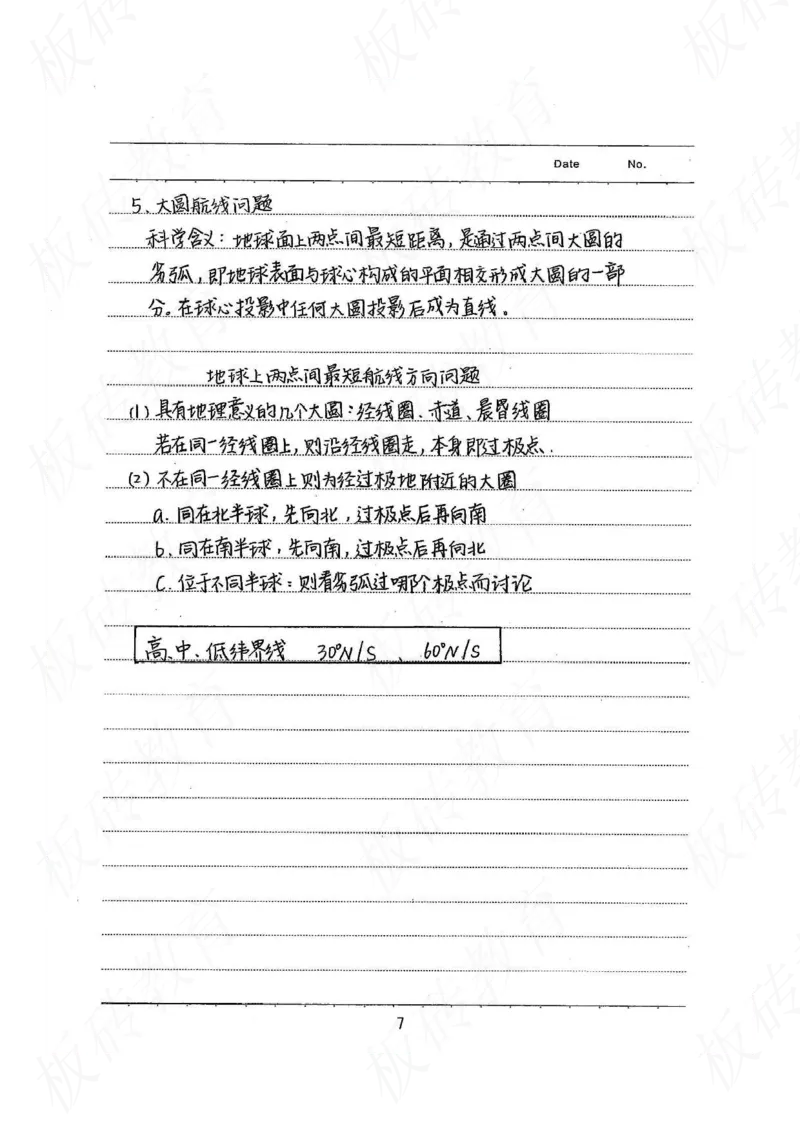 Date No.
5、大圆航线问题
科学含义：地球面上两点间最短距离，是通过两点间大圆的
劣弧，即地球表面与球心构成的平面相交形成大圆的一部
分。在球心投影中任何大圆投影后成为直线。
地球上两点间最短航线方向问题
(1) 具有地理意义的几个大圆：经线圈、赤道、晨昏线圈
若在同一经线圈上，则沿经线圈走，本身即过极点.
(2) 不在同一经线圈上则为经过极地附近的大圈
a. 同在北半球，先向北，过极点后再向南
b. 同在南半球，先向南，过极点后再向北
C. 位于不同半球：则看劣弧过哪个极点而讨论
高、中、低纬界线 30°N/S 、 60°N/S
7
板砖教育